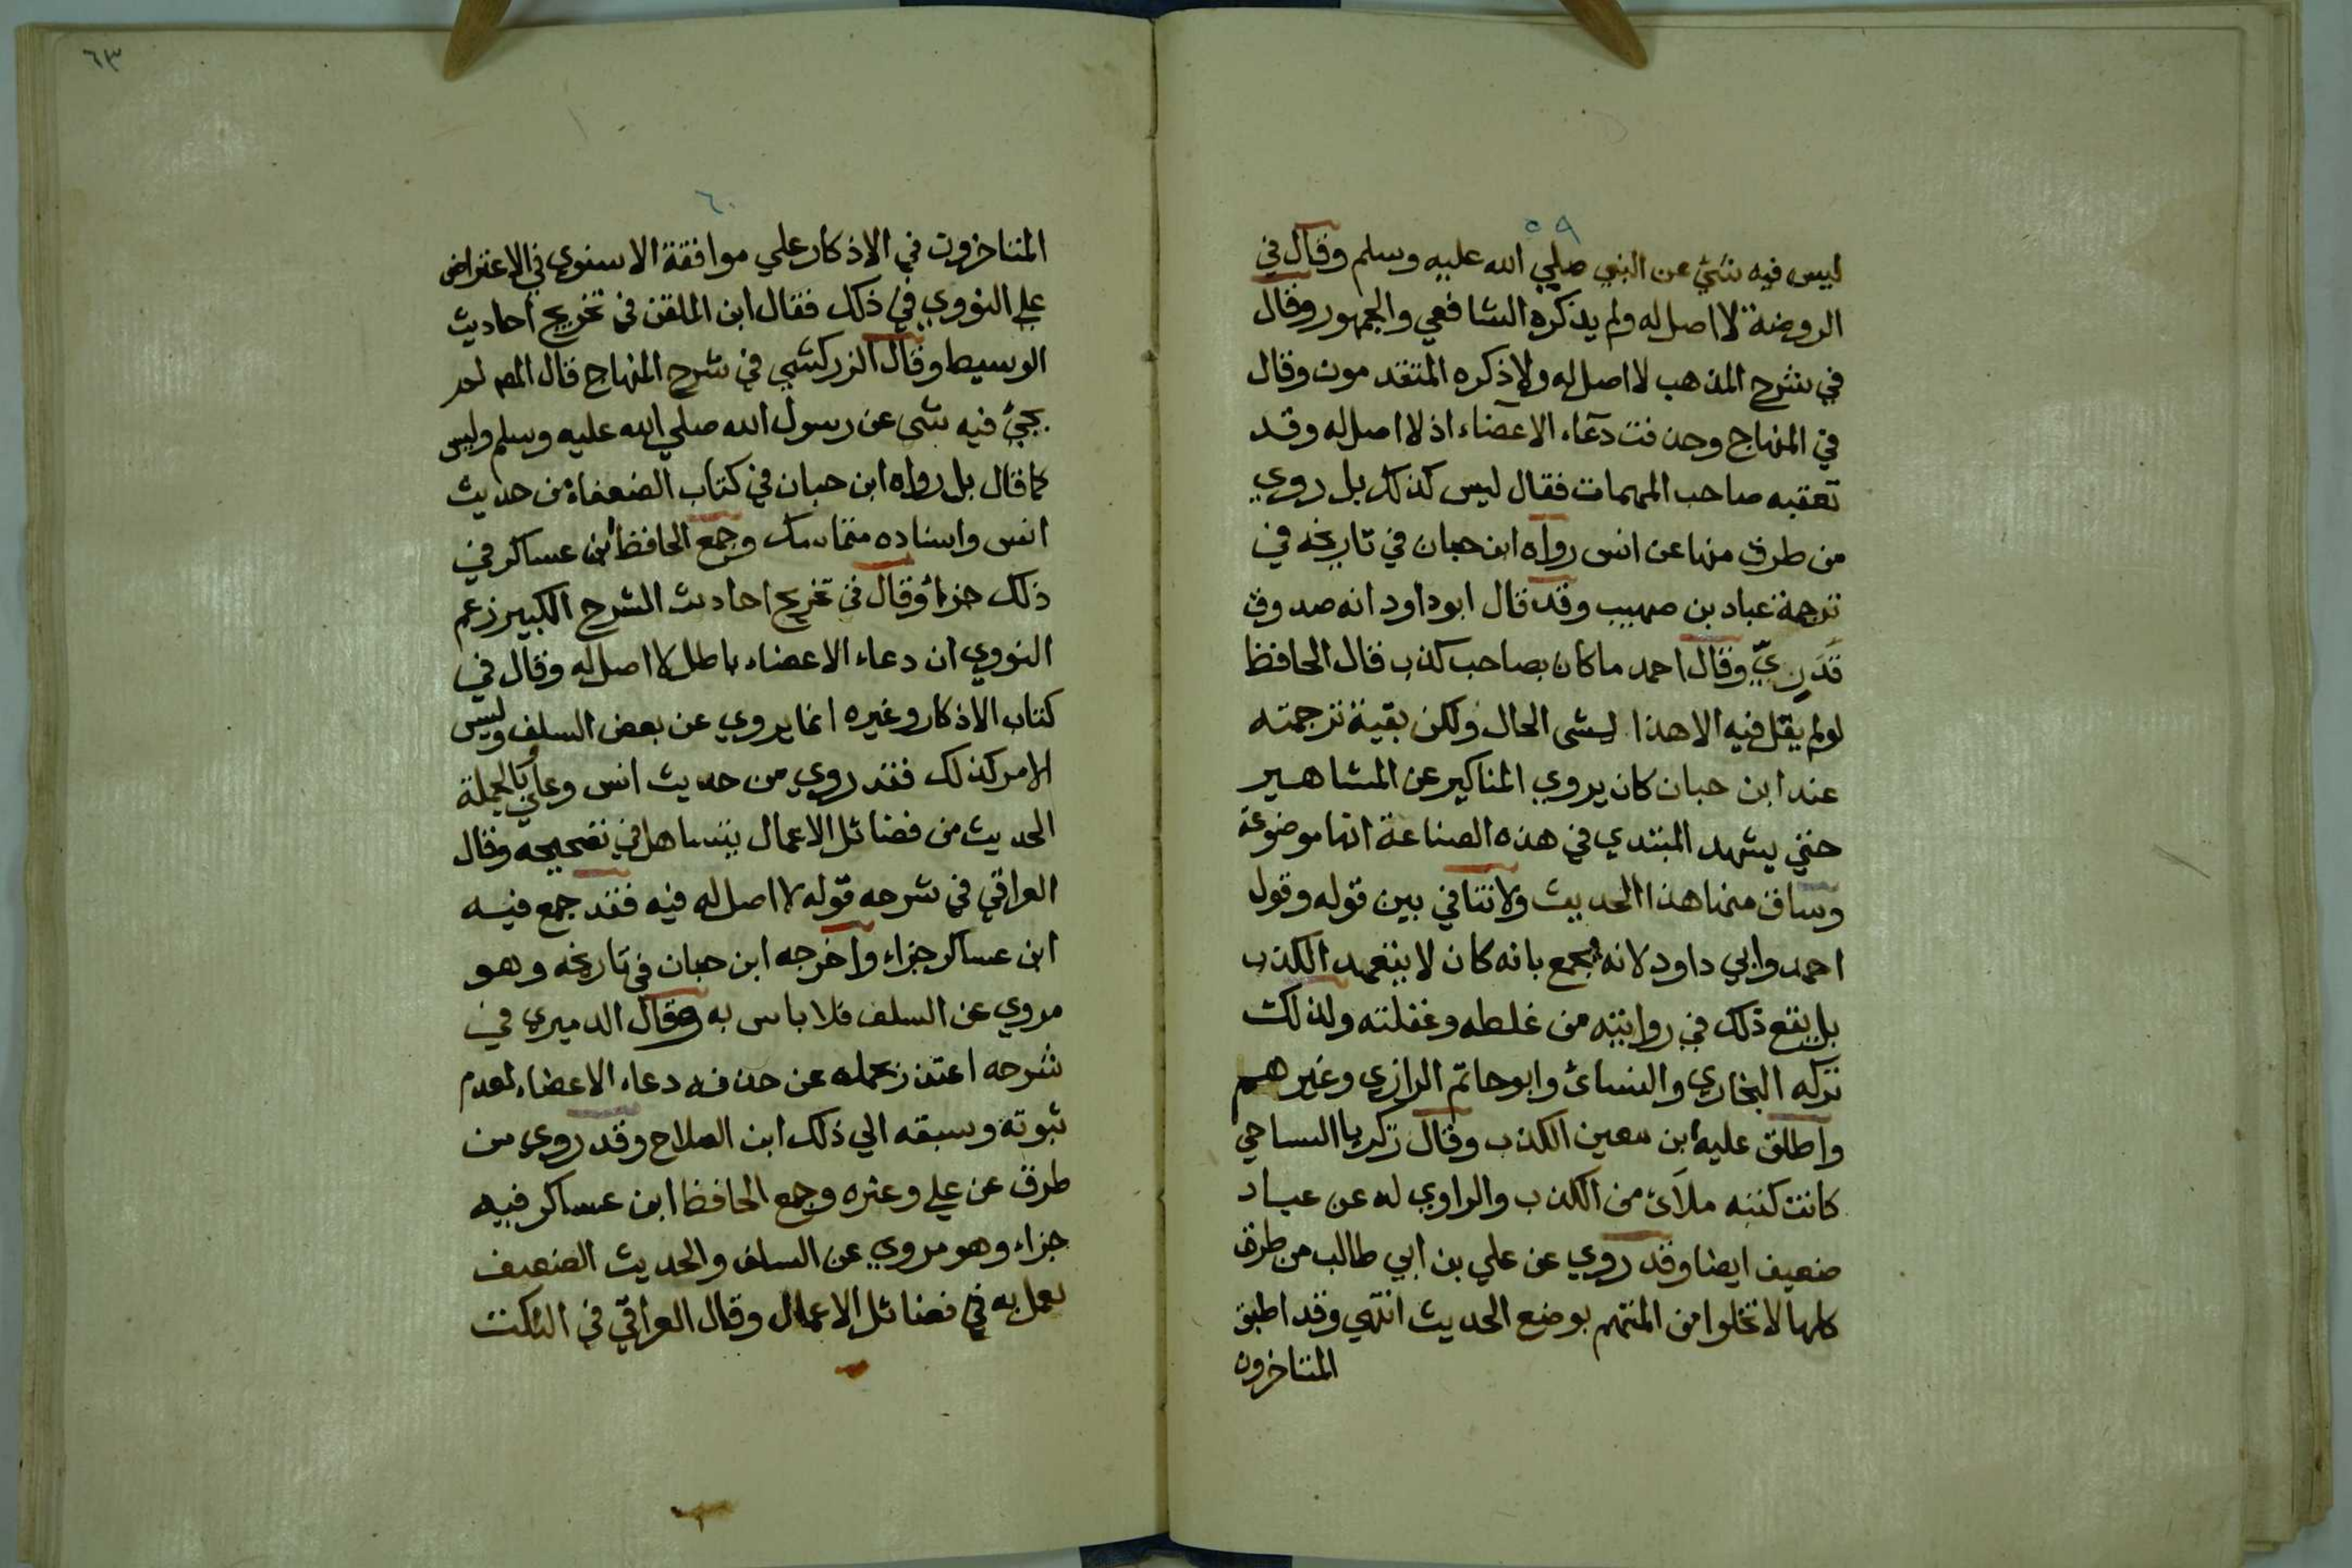 ٥٩
ليس فيه شئ عن النبي صلي الله عليه وسلم وقال في
الروضة لا اصل له ولم يذكره الشافعي والجمهور وقال
في شرح المذهب لا اصل له ولا ذكره المتقدمون وقال
في المنهاج وحذفت دعاء الاعضاء اذ لا اصل له وقد
تعقبه صاحب المهمات فقال ليس كذلك بل روي
من طرق منها عن انس رواه ابن حبان في تاريخه في
ترجمة عباد بن صهيب وقد قال ابو داود انه صدوق
قَدَرِيّ وقال احمد ما كان بصاحب كذب قال الحافظ
لو لم يقل فيه الا هذا لمشى الحال ولكن بقية ترجمته
عند ابن حبان كان يروي المناكير عن المشاهير
حتي يشهد المبتدي في هذه الصناعة انها موضوعة
وساق منها هذا الحديث ولا تنافي بين قوله وقول
احمد وابي داود لانه يجمع بانه كان لا يتعمد الكذب
بل يقع ذلك في روايته من غلطه وغفلته ولذلك
تركه البخاري والنسائ وابو حاتم الرازي وغيرهم
واطلق عليه ابن معين الكذب وقال زكريا الساجي
كانت كتبه ملآئ من الكذب والراوي له عن عباد
ضعيف ايضا وقد روي عن علي بن ابي طالب من طرق
كلها لا تخلوا من المتهم بوضع الحديث انتهي وقد اطبق
المتاخرون
٦٣
٦٠
المتاخرون في الاذكار علي موافقة الاسنوي في الاعتراض
علي النووي في ذلك فقال ابن الملقن في تخريج احاديث
الوسيط وقال الزركشي في شرح المنهاج قال المص لم
يجئ فيه شى عن رسول الله صلي الله عليه وسلم وليس
كما قال بل رواه ابن حبان في كتاب الضعفاء من حديث
انس واسناده متماسك وجمع الحافظ ابن عساكر في
ذلك جزءا وقال في تخريج احاديث الشرح الكبير زعم
النووي ان دعاء الاعضاء باطل لا اصل له وقال في
كتاب الاذكار وغيره انما يروي عن بعض السلف وليس
الامر كذلك فقد روي من حديث انس وعلي وبالجملة
الحديث من فضائل الاعمال يتساهل في تصحيحه وقال
العراقي في شرحه قوله لا اصل له فيه فقد جمع فيه
ابن عساكر جزاء واخرجه ابن حبان في تاريخه وهو
مروي عن السلف فلا باس به وقال الدميري في
شرحه اعتذر بعملهم عن حذفه دعاء الاعضاء لعدم
ثبوته وسبقه الي ذلك ابن الصلاح وقد روي من
طرق عن علي وغيره وجمع الحافظ ابن عساكر فيه
جزاء وهو مروي عن السلف والحديث الضعيف
يعمل به في فضائل الاعمال وقال العراقي في النكت